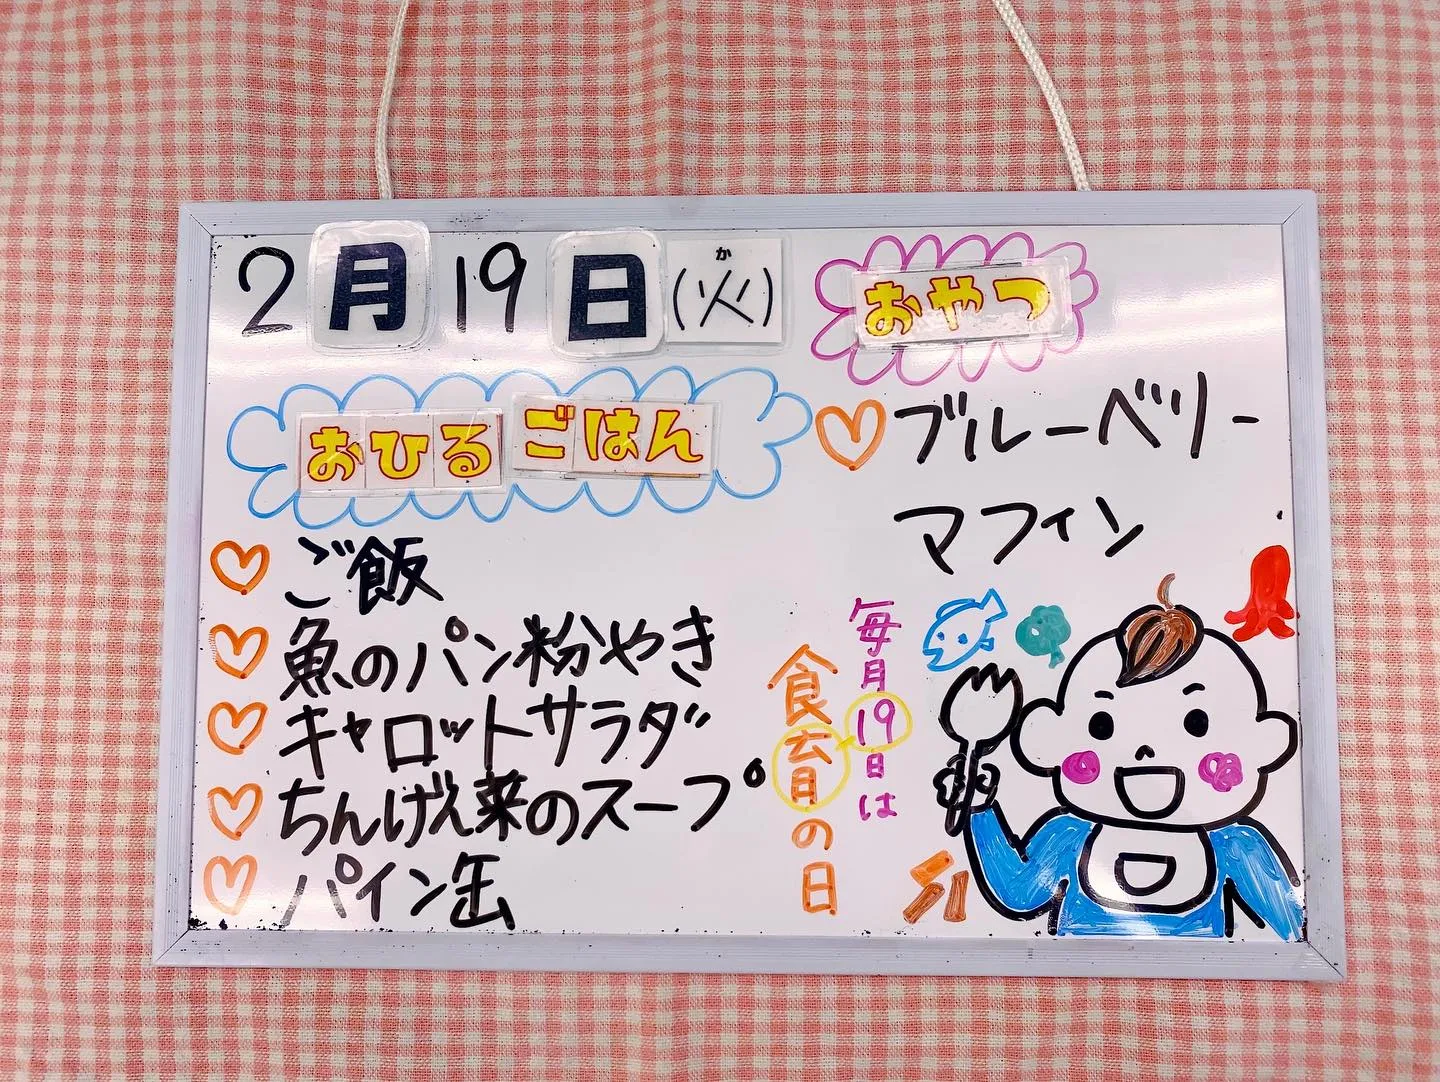 2月19日(火)
か
おひるごはん
ご飯
魚のパン粉やき
キャロットサラダ
ちんげん菜のスープ
パイン缶
おやつ
ブルーベリー
マフィン
毎月19日は
食育の日